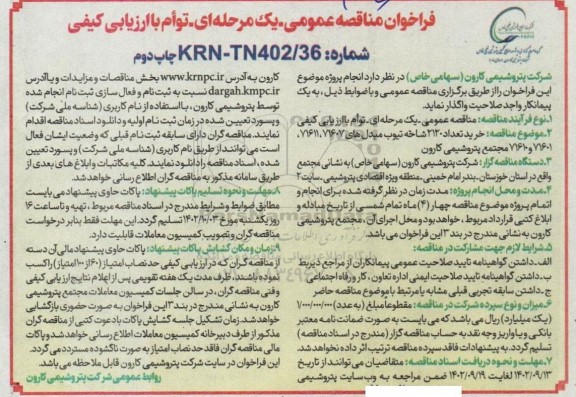 فراخوان مناقصه عمومی-یک مرحله‌ای-توأم با ارزیابی کیفی
شماره: KRN-TN402/36 چاپ دوم
شرکت پتروشیمی کارون (سهامی خاص) در نظر دارد انجام پروژه موضوع
این فراخوان را از طریق برگزاری مناقصه عمومی و با ضوابط ذیل، به یک
پیمانکار واجد صلاحیت واگذار نماید.
۱.نوع فرآیند مناقصه: مناقصه عمومی. یک مرحله ای. توأم با ارزیابی کیفی
۲.موضوع مناقصه: خرید تعداد ۲۱۲۰ شاخه تیوب مبدل‌های
مجتمع پتروشیمی کارون
۳.دستگاه مناقصه گزار: شرکت پتروشیمی کارون (سهامی خاص) به نشانی مجتمع
واقع در استان خوزستان، بندر امام خمینی، منطقه ویژه اقتصادی پتروشیمی، سایت ۲
۴.مدت و محل انجام پروژه: مدت زمان در نظر گرفته شده برای انجام و
اتمام پروژه موضوع مناقصه چهار (۴) ماه تمام شمسی از تاریخ مبادله و
ابلاغ کتبی قرارداد مربوط، خواهد بود و محل اجرای آن، مجتمع پتروشیمی
کارون به نشانی مندرج در بند ۳ این فراخوان می باشد.
۵.شرایط لازم جهت مشارکت در مناقصه:
الف. داشتن گواهینامه تایید صلاحیت عمومی پیمانکاران از مراجع ذیربط
ب. داشتن گواهینامه تایید صلاحیت ایمنی اداره تعاون، کار و رفاه اجتماعی
ج. داشتن سابقه تجربی قبلی مشابه یا مرتبط با موضوع مناقصه حاضر
۶.میزان و نوع سپرده شرکت در مناقصه: مقطوعا مبلغ (به عدد) ۱/۰۰۰/۰۰۰/۰۰۰
(یک میلیارد) ریال می باشد که می بایست به صورت ضمانت نامه معتبر
بانکی و یا واریز وجه نقد به حساب مناقصه گزار (مندرج در اسناد مناقصه)
تسلیم گردد. به پیشنهادات فاقد سپرده مناقصه ترتیب اثر داده نخواهد شد.
۷.مهلت و نحوه دریافت اسناد مناقصه: متقاضیان می توانند از تاریخ
۱۴۰۲/۰۹/۱۳ لغایت ۱۴۰۲/۰۹/۱۹ ضمن مراجعه به وب سایت پتروشیمی
کارون به آدرس www.krnpc.ir بخش مناقصات و مزایدات و یا آدرس
dargah.kmpc.ir نسبت به ثبت نام و فعال سازی ثبت نام انجام شده
توسط پتروشیمی کارون، با استفاده از نام کاربری (شناسه ملی شرکت)
و پسورد تعیین شده در زمان ثبت نام اولیه و دانلود اسناد مناقصه اقدام
نمایند. مناقصه گران دارای سابقه ثبت نام قبلی که وضعیت ایشان فعال
است می توانند از طریق نام کاربری (شناسه ملی شرکت) و پسورد تعیین
شده، اسناد مناقصه را دانلود نمایند. کلیه مکاتبات و ابلاغ های بعدی از
طریق سامانه مذکور به مناقصه گران اطلاع رسانی خواهد شد.
۸.مهلت و نحوه تسلیم پاکات پیشنهاد: پاکات حاوی پیشنهاد می بایست
مطابق ضوابط و شرایط مندرج در اسناد مناقصه مربوط، تهیه و تا ساعت ۱۶
روز یکشنبه مورخ ۱۴۰۲/۱۰/۰۳ تسلیم گردد. این مهلت فقط بنابر درخواست
مناقصه گران و تصویب کمیسیون معاملات قابلیت دارد.
۹.زمان و مکان گشایش پاکات پیشنهاد: پاکات حاوی پیشنهاد مالی آن دسته
از مناقصه گران که در ارزیابی کیفی حد نصاب امتیاز (۶۰ از ۱۰۰ امتیاز) را کسب
نموده باشند، ظرف مدت یک هفته تقویمی پس از اعلام نتایج ارزیابی کیفی
و فنی مناقصه گران، در سالن جلسات کمیسیون معاملات مجتمع پتروشیمی
کارون به نشانی مندرج در بند ۳ این فراخوان به صورت حضوری بازگشایی
خواهد شد. زمان تشکیل جلسه گشایش پاکات با دعوت کتبی از مناقصه گران
مذکور از طرف دبیرخانه کمیسیون معاملات اطلاع رسانی خواهد شد و پاکات
مالی مناقصه گران فاقد حد نصاب امتیاز به صورت ناگشوده مسترد می گردد.
این فراخوان در سایت شرکت پتروشیمی کارون قابل ملاحظه می باشد.
روابط عمومی شرکت پتروشیمی کارون